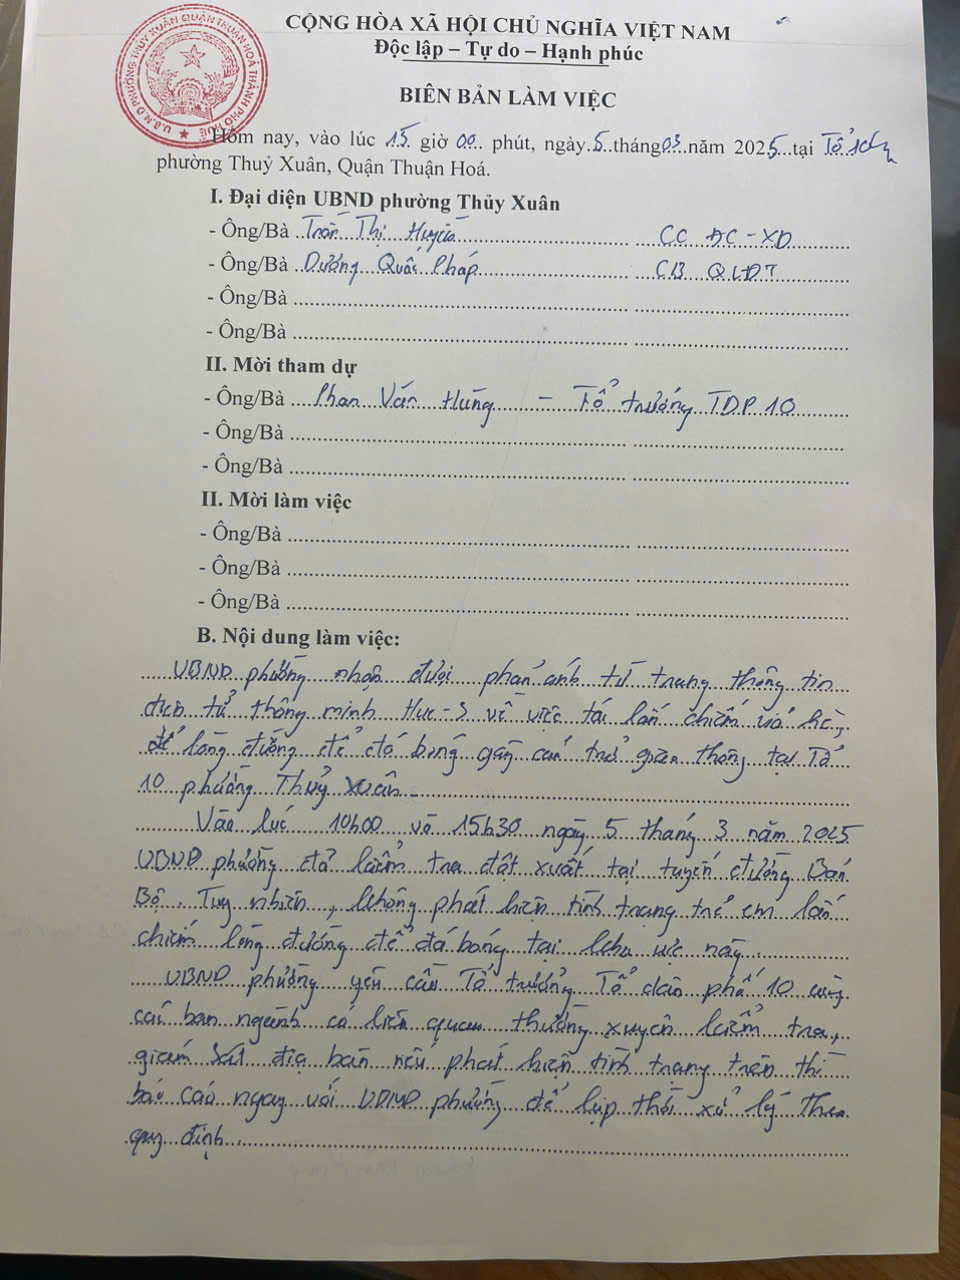 CỘNG HÒA XÃ HỘI CHỦ NGHĨA VIỆT NAM
Độc lập – Tự do – Hạnh phúc
BIÊN BẢN LÀM VIỆC
U.B.N.D PHƯỜNG THUỶ XUÂN QUẬN THUẬN HOÁ THÀNH PHỐ HUẾ
Hôm nay, vào lúc 15 giờ 00 phút, ngày 5 tháng 03 năm 2025 tại Tổ 10
phường Thuỷ Xuân, Quận Thuận Hoá.
I. Đại diện UBND phường Thủy Xuân
- Ông/Bà Trần Thị Huyền CC ĐC-XD
- Ông/Bà Dương Quốc Pháp CB QLĐT
- Ông/Bà
- Ông/Bà
II. Mời tham dự
- Ông/Bà Phan Văn Hùng - Tổ trưởng TDP 10
- Ông/Bà
- Ông/Bà
II. Mời làm việc
- Ông/Bà
- Ông/Bà
- Ông/Bà
B. Nội dung làm việc:
UBND phường nhận được phản ánh từ trang thông tin
điện tử thông minh Hue-S về việc tái lấn chiếm vỉa hè,
lòng đường để đá bóng gây cản trở giao thông tại Tổ
10 phường Thuỷ Xuân.
Vào lúc 10h00 và 15h30 ngày 5 tháng 3 năm 2025
UBND phường đã kiểm tra đột xuất tại tuyến đường Bán
Bộ. Tuy nhiên, không phát hiện tình trạng trẻ em lấn
chiếm lòng đường để đá bóng tại khu vực này.
UBND phường yêu cầu Tổ trưởng Tổ dân phố 10 cùng
các ban ngành có liên quan thường xuyên kiểm tra,
giám sát địa bàn nếu phát hiện tình trạng trên thì
báo cáo ngay với UBND phường để kịp thời xử lý theo
quy định.